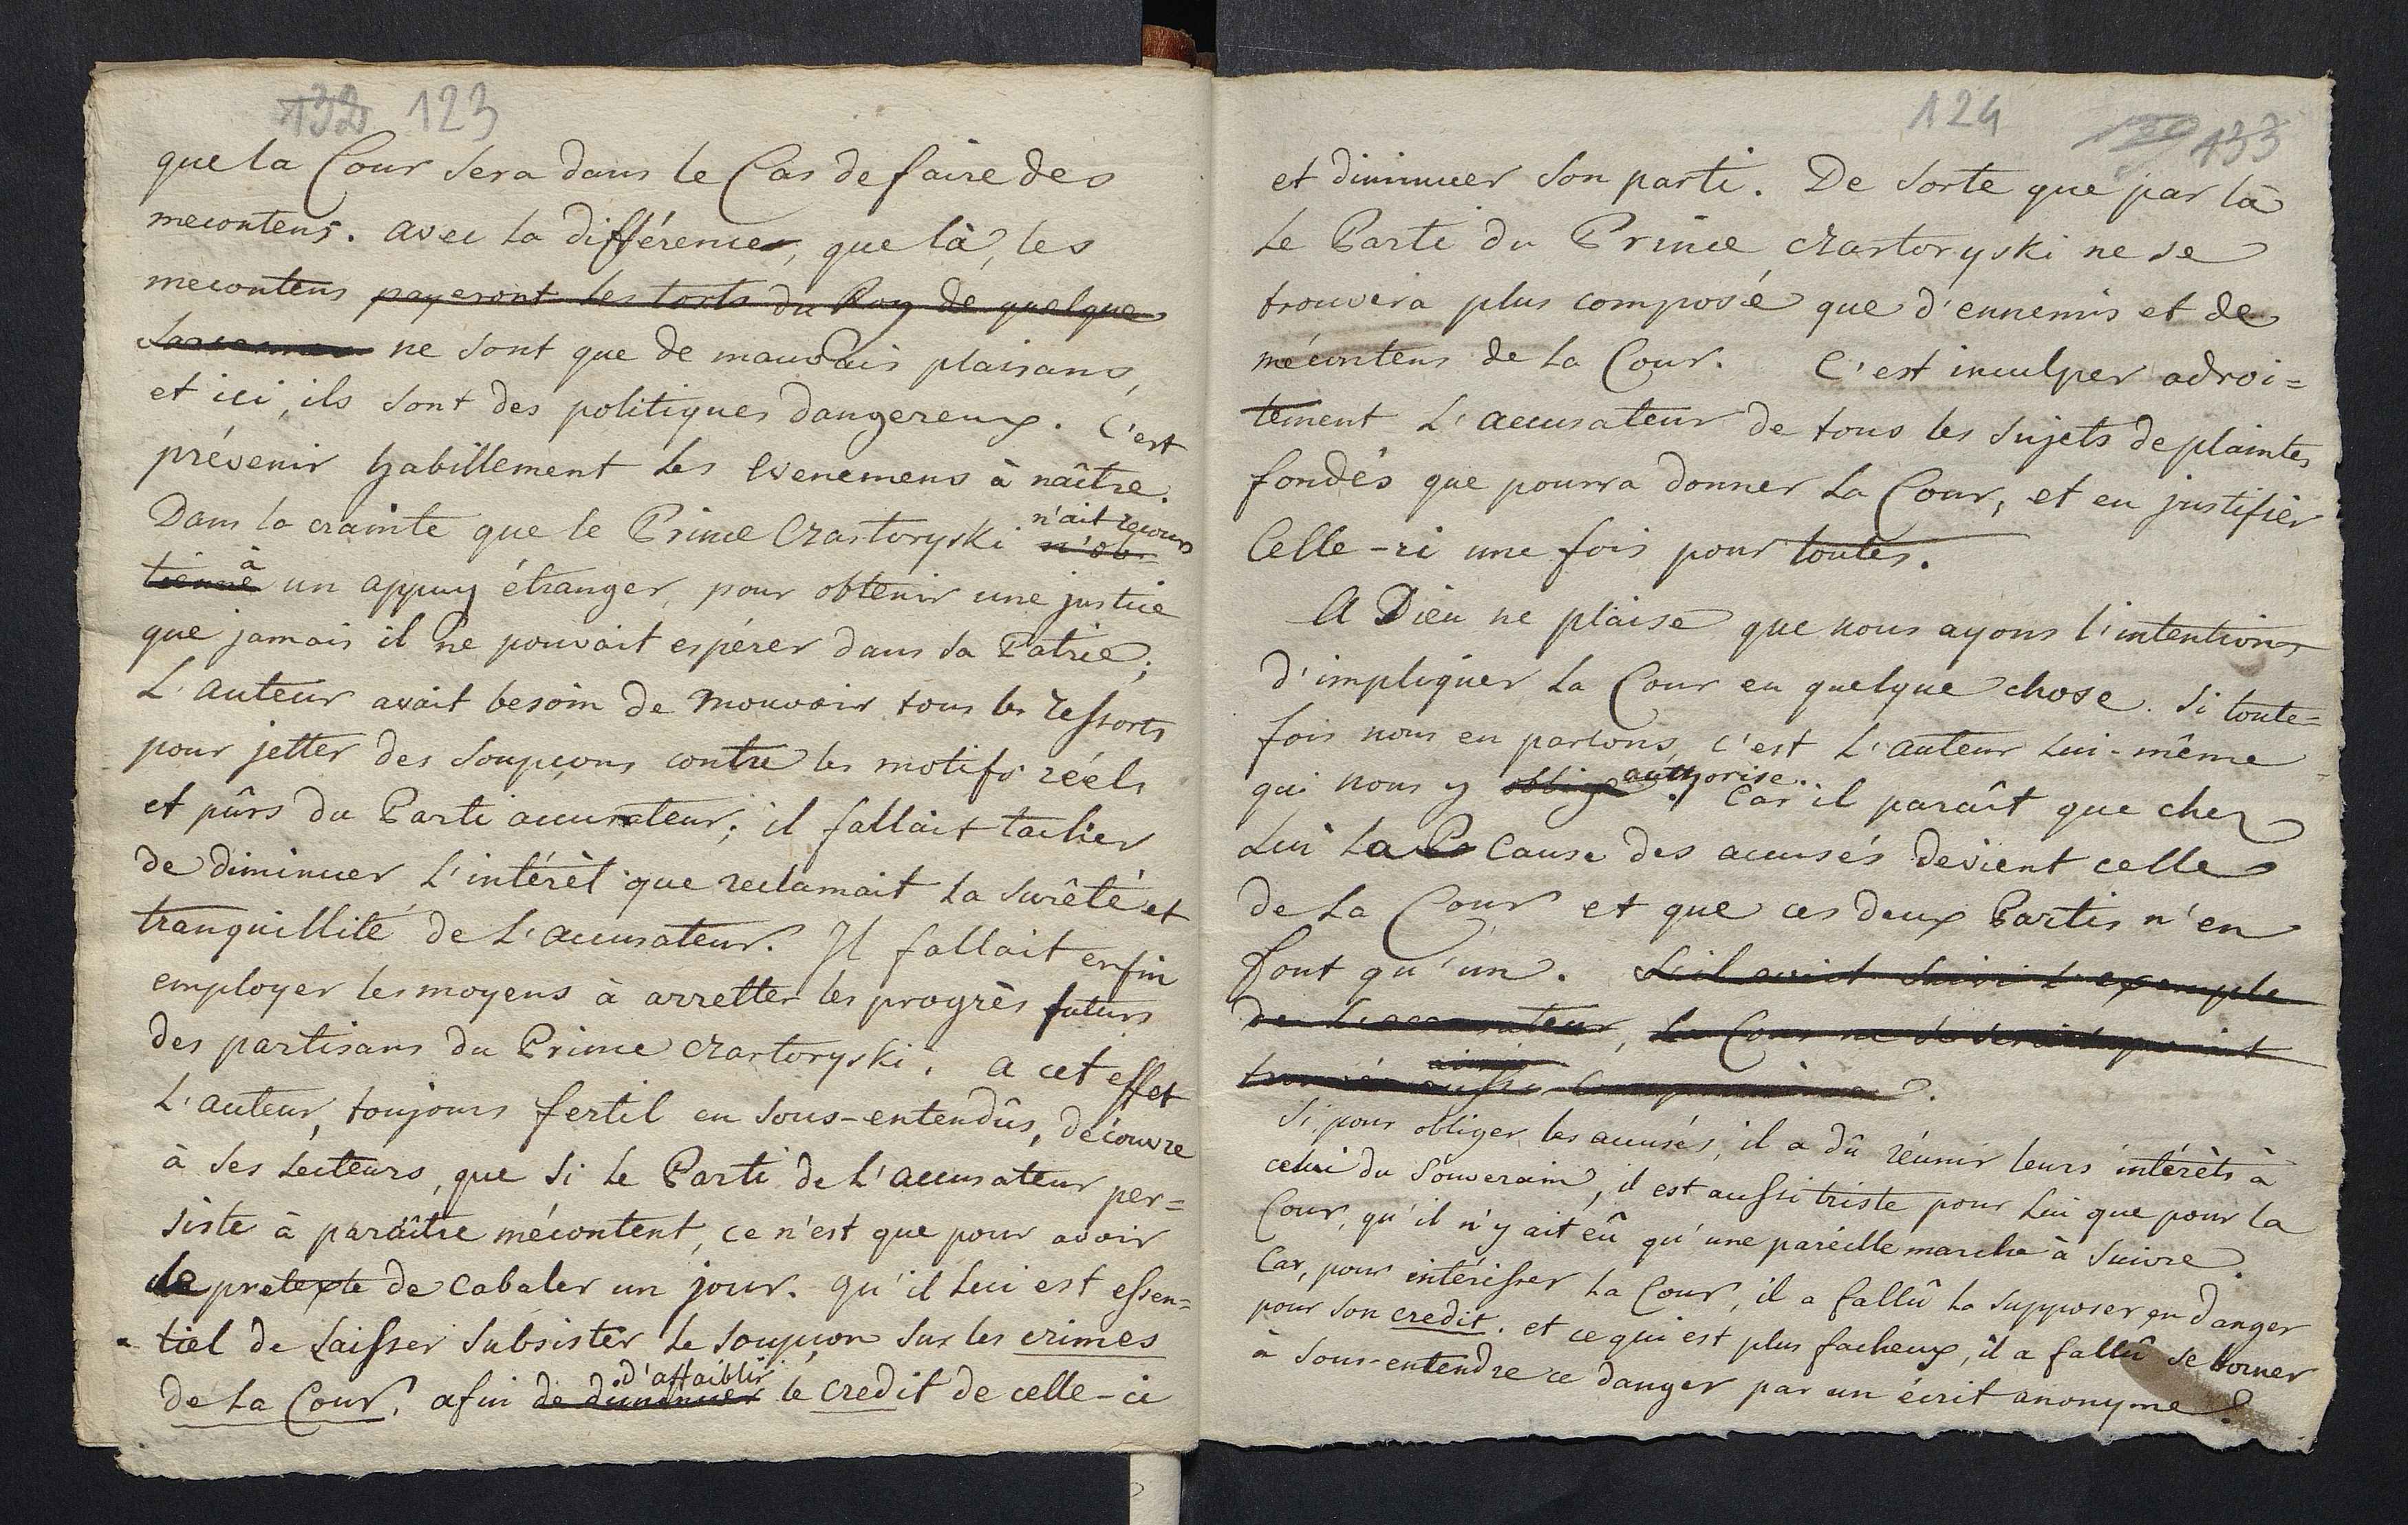 132 123
que la Cour sera dans le Cas de faire des
mecontens. avec la différence, que là, les
mecontens payeront les torts du Roy de quelque
ne sont que de mauvais plaisans,
et ici, ils sont des politiques dangereux. C'est
prévenir habillement les Evenemens à naître.
Dans la crainte que le Prince Czartoryski n'ob= n'ait recours
tienne à un appuy étranger, pour obtenir une justice
que jamais il ne pouvait espérer dans sa Patrie;
L'auteur avait besoin de mouvoir tous les ressorts
pour jetter des soupçons contre les motifs réels
et pûrs du Parti accusateur; il fallait tacher
de diminuer L'intérèt que reclamait la surêté et
tranquillité de L'accusateur. Il fallait enfin
employer les moyens à arretter les progrès futurs
des partisans du Prince Czartoryski. a cet effet
L'auteur, toujours fertil en sous-entendûs, découvre
à ses Lecteurs, que si le Parti de L'accusateur per=
siste à paraître mécontent, ce n'est que pour avoir
le pretexte de cabaler un jour. qu'il Lui est essen=
tiel de Laisser subsister le soupçon sur les crimes
de la Cour, afin de diminuer d'affaiblir le credit de celle-ci
124 133
et diminuer son parti. De sorte que par là
le Parti du Prince Czartoryski ne se
trouvera plus composé que d'ennemis et de
mécontens de la Cour. C'est inculper adroi=
tement L'accusateur de tous les sujets de plaintes
fondés que pourra donner la Cour, et en justifier
Celle-ci une fois pour toutes.
A Dieu ne plaise que nous ayons l'intention
d'impliquer la Cour en quelque chose. Si toute=
fois nous en parlons, c'est L'auteur Lui-même
qui nous y oblige authorise. Car il paraît que chez
Lui La Cause des accusés devient celle
de la Cour et que ces deux Partis n'en
font qu'un. S'il avait suivi L'exemple
de L'accusateur, la Cour ne se serait point
trouvée aussi ainsi compromise.
Si, pour obliger les accusés, il a dû réunir leurs intérèts à
celui du Souverain, il est aussi triste pour Lui que pour la
Cour, qu'il n'y ait eû qu'une pareille marche à suivre.
Car, pour intéresser la Cour, il a fallû la supposer en danger
pour son credit. et ce qui est plus facheux, il a fallû se borner
à sous-entendre ce danger par un écrit anonyme!